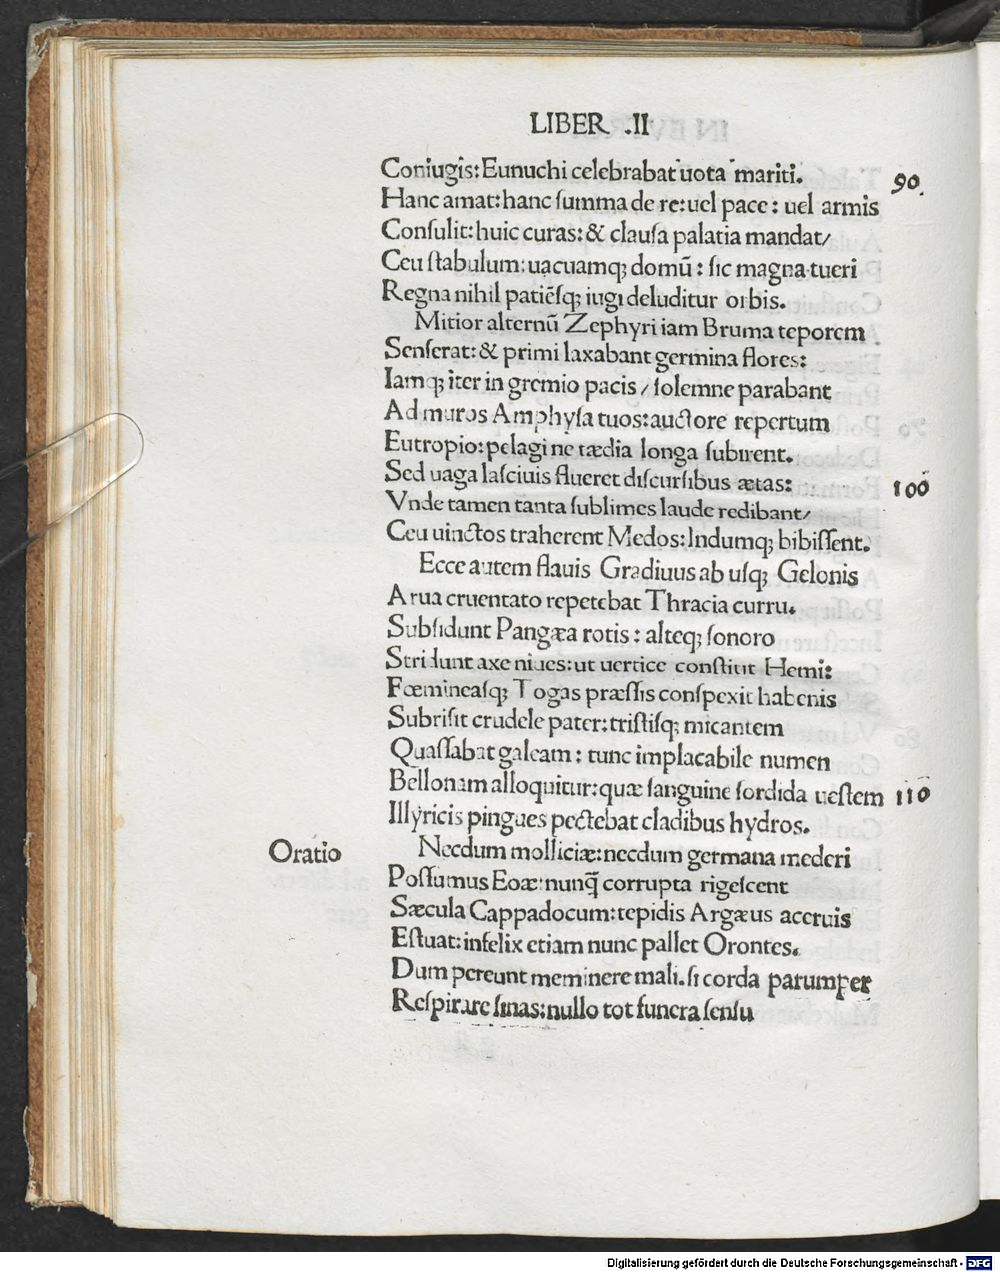 LIBER .II
Coniugis: Eunuchi celebrabat uota mariti. 90
Hanc amat: hanc summa de re: uel pace: uel armis
Consulit: huic curas: & clausa palatia mandat/
Ceu stabulum: uacuamq; domū: sic magna tueri
Regna nihil patiēsq; iugi deluditur orbis.
Mitior alternū Zephyri iam Bruma teporem
Senserat: & primi laxabant germina flores:
Iamq; iter in gremio pacis / solemne parabant
Ad muros Amphysa tuos: auctore repertum
Eutropio: pelagi ne tædia longa subirent.
Sed uaga lasciuis flueret discursibus ætas: 100
Vnde tamen tanta sublimes laude redibant/
Ceu uinctos traherent Medos: Indumq; bibissent.
Ecce autem flauis Gradiuus ab usq; Gelonis
Arua cruentato repetebat Thracia curru.
Subsidunt Pangæa rotis: alteq; sonoro
Stridunt axe niues: ut uertice constitit Hemi:
Fœmineasq; Togas præssis conspexit habenis
Subrisit crudele pater: tristisq; micantem
Quassabat galeam: tunc implacabile numen
Bellonam alloquitur: quæ sanguine sordida uestem 110
Illyricis pingues pectebat cladibus hydros.
Oratio Necdum molliciæ: necdum germana mederi
Possumus Eoæ: nunq̄ corrupta rigescent
Sæcula Cappadocum: tepidis Argæus aceruis
Estuat: infelix etiam nunc pallet Orontes.
Dum pereunt meminere mali. si corda parumper
Respirare sinas: nullo tot funera sensu
Digitalisierung gefördert durch die Deutsche Forschungsgemeinschaft - DFG